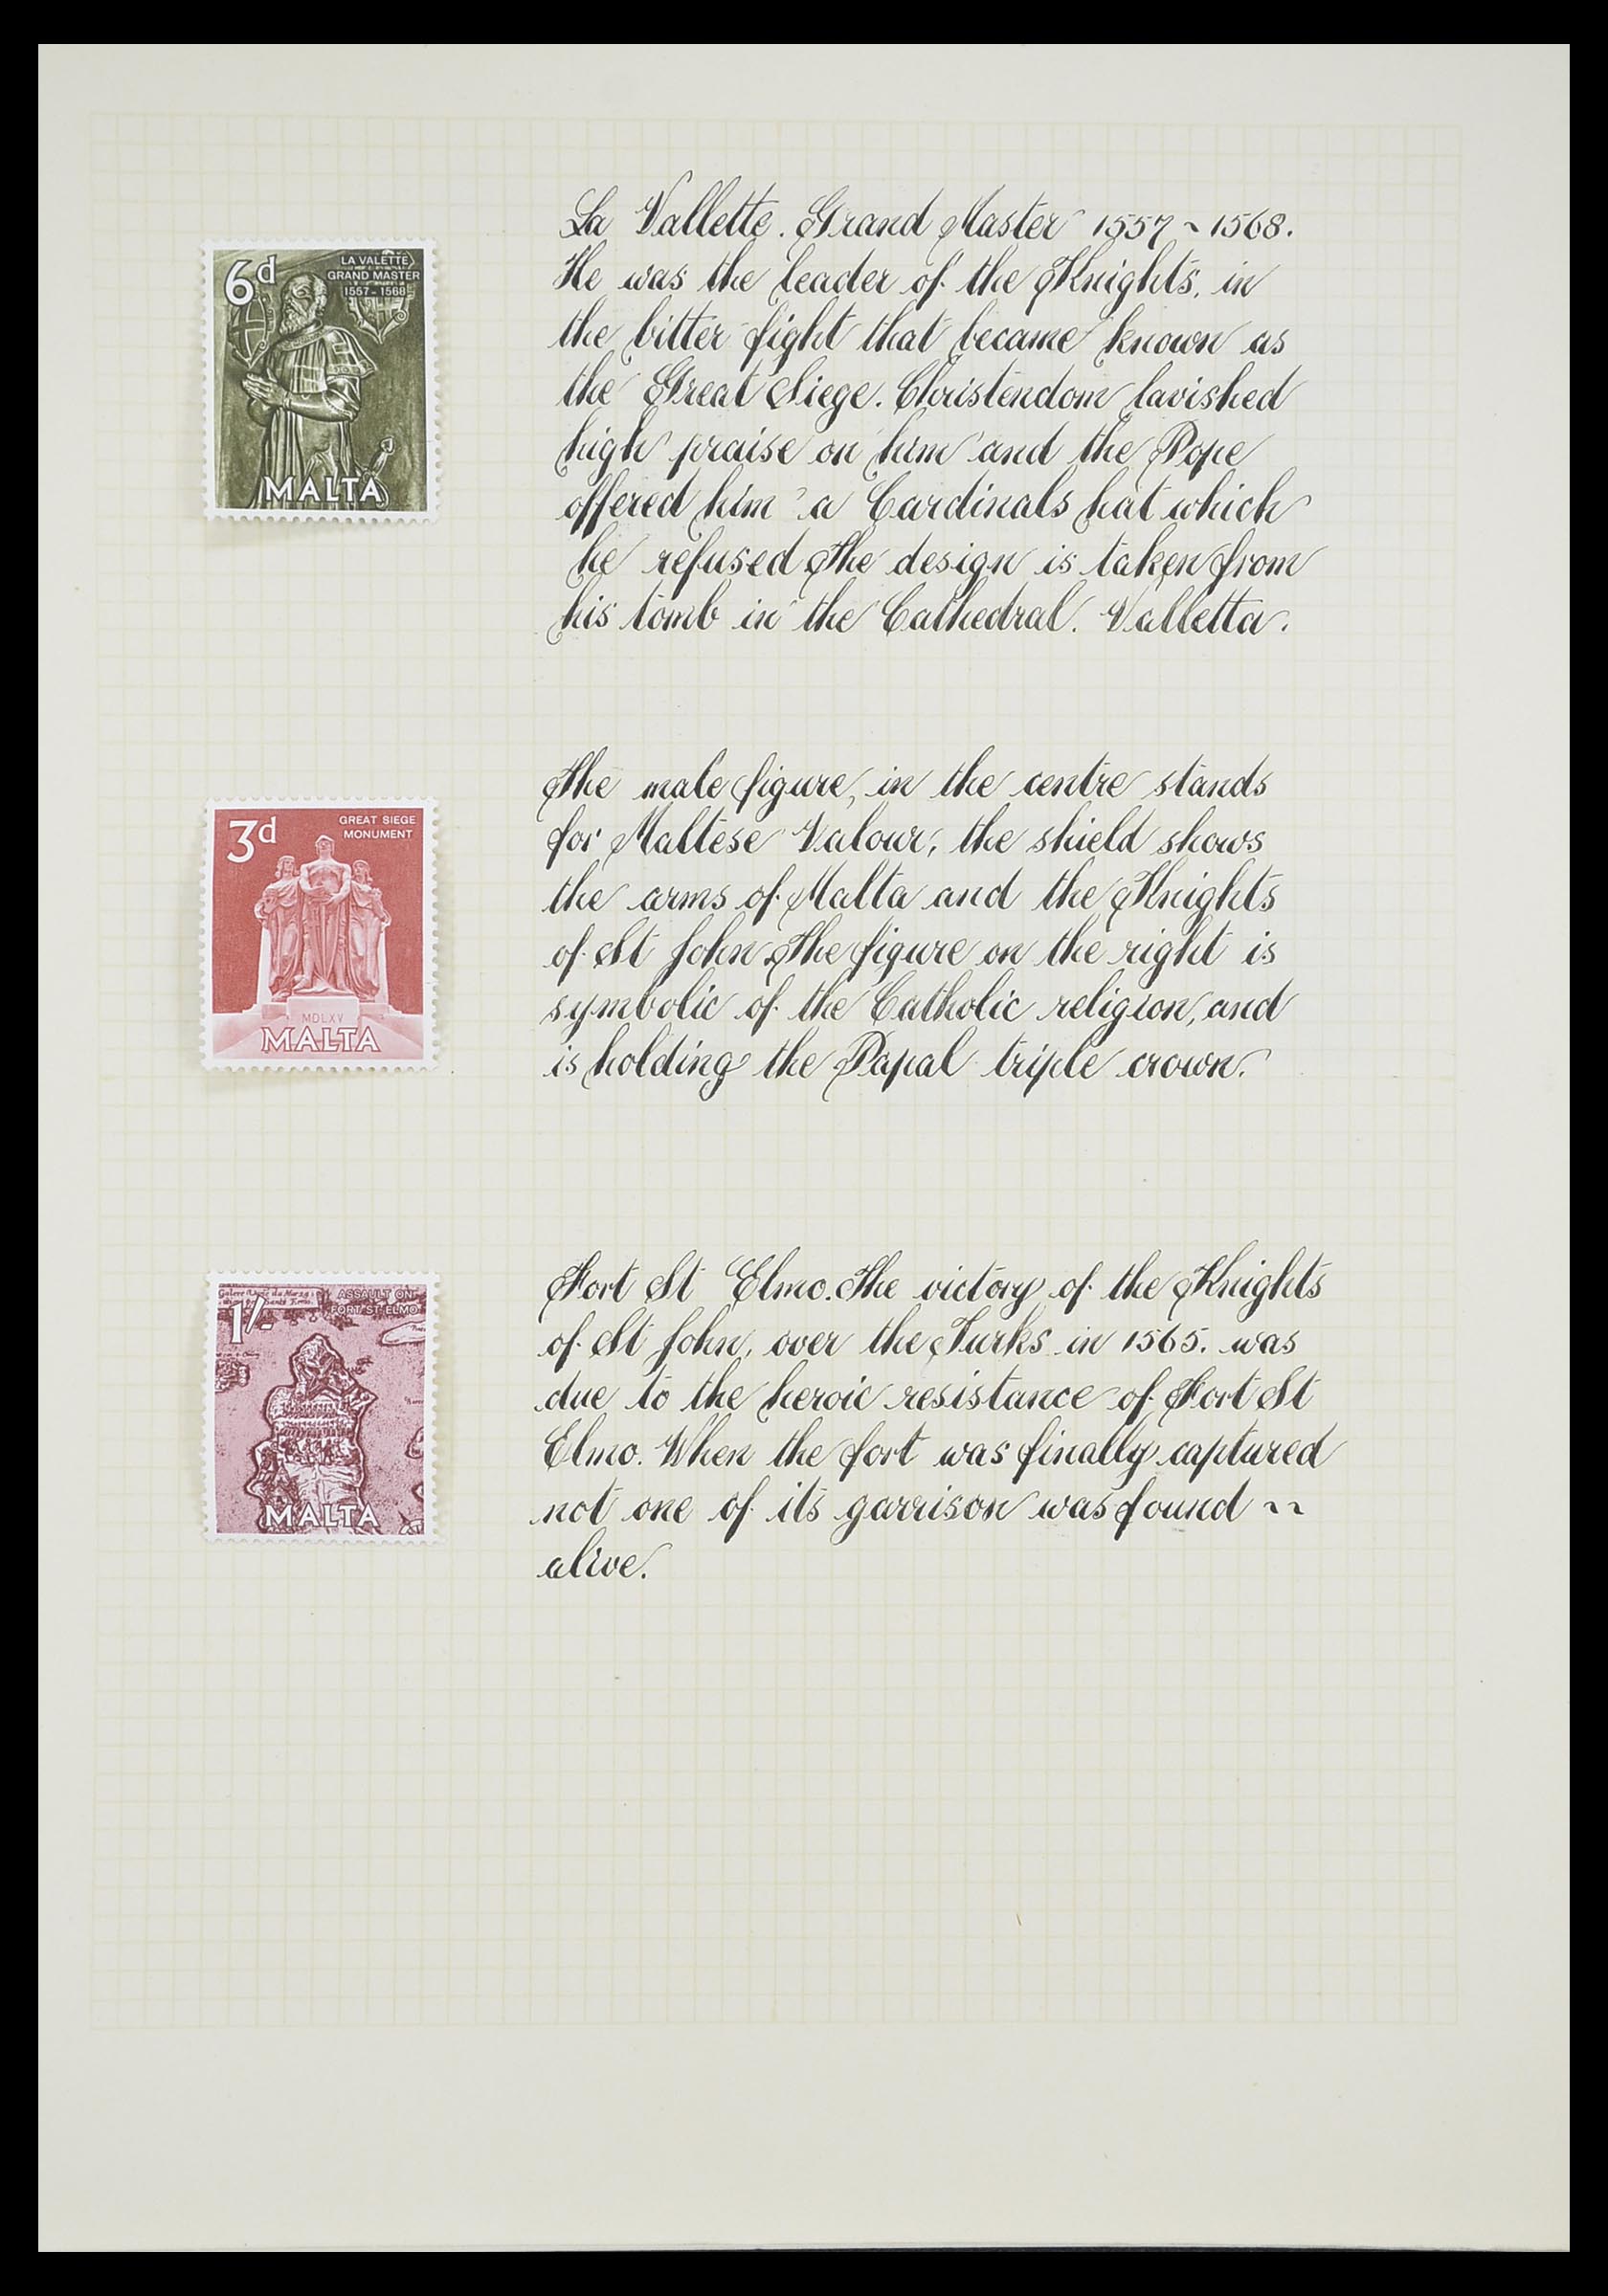 La Vallette. Grand Master 1557 ~ 1568.
He was the leader of the Knights, in
the bitter fight that became known as
the Great Siege. Christendom lavished
high praise on him and the Pope
offered him a Cardinals hat which
he refused The design is taken from
his tomb in the Cathedral. Valletta.
6d
LA VALETTE
GRAND MASTER
1557-1568
MALTA
The male figure, in the centre stands
for Maltese Valour, the shield shows
the arms of Malta and the Knights
of St John. The figure on the right is
symbolic of the Catholic religion, and
is holding the Papal triple crown.
3d
GREAT SIEGE
MONUMENT
MDLXV
MALTA
Fort St Elmo. The victory of the Knights
of St John, over the Turks in 1565. was
due to the heroic resistance of Fort St
Elmo. When the fort was finally captured
not one of its garrison was found ~~
alive.
1/-
ASSAULT ON
FORT ST ELMO
MALTA